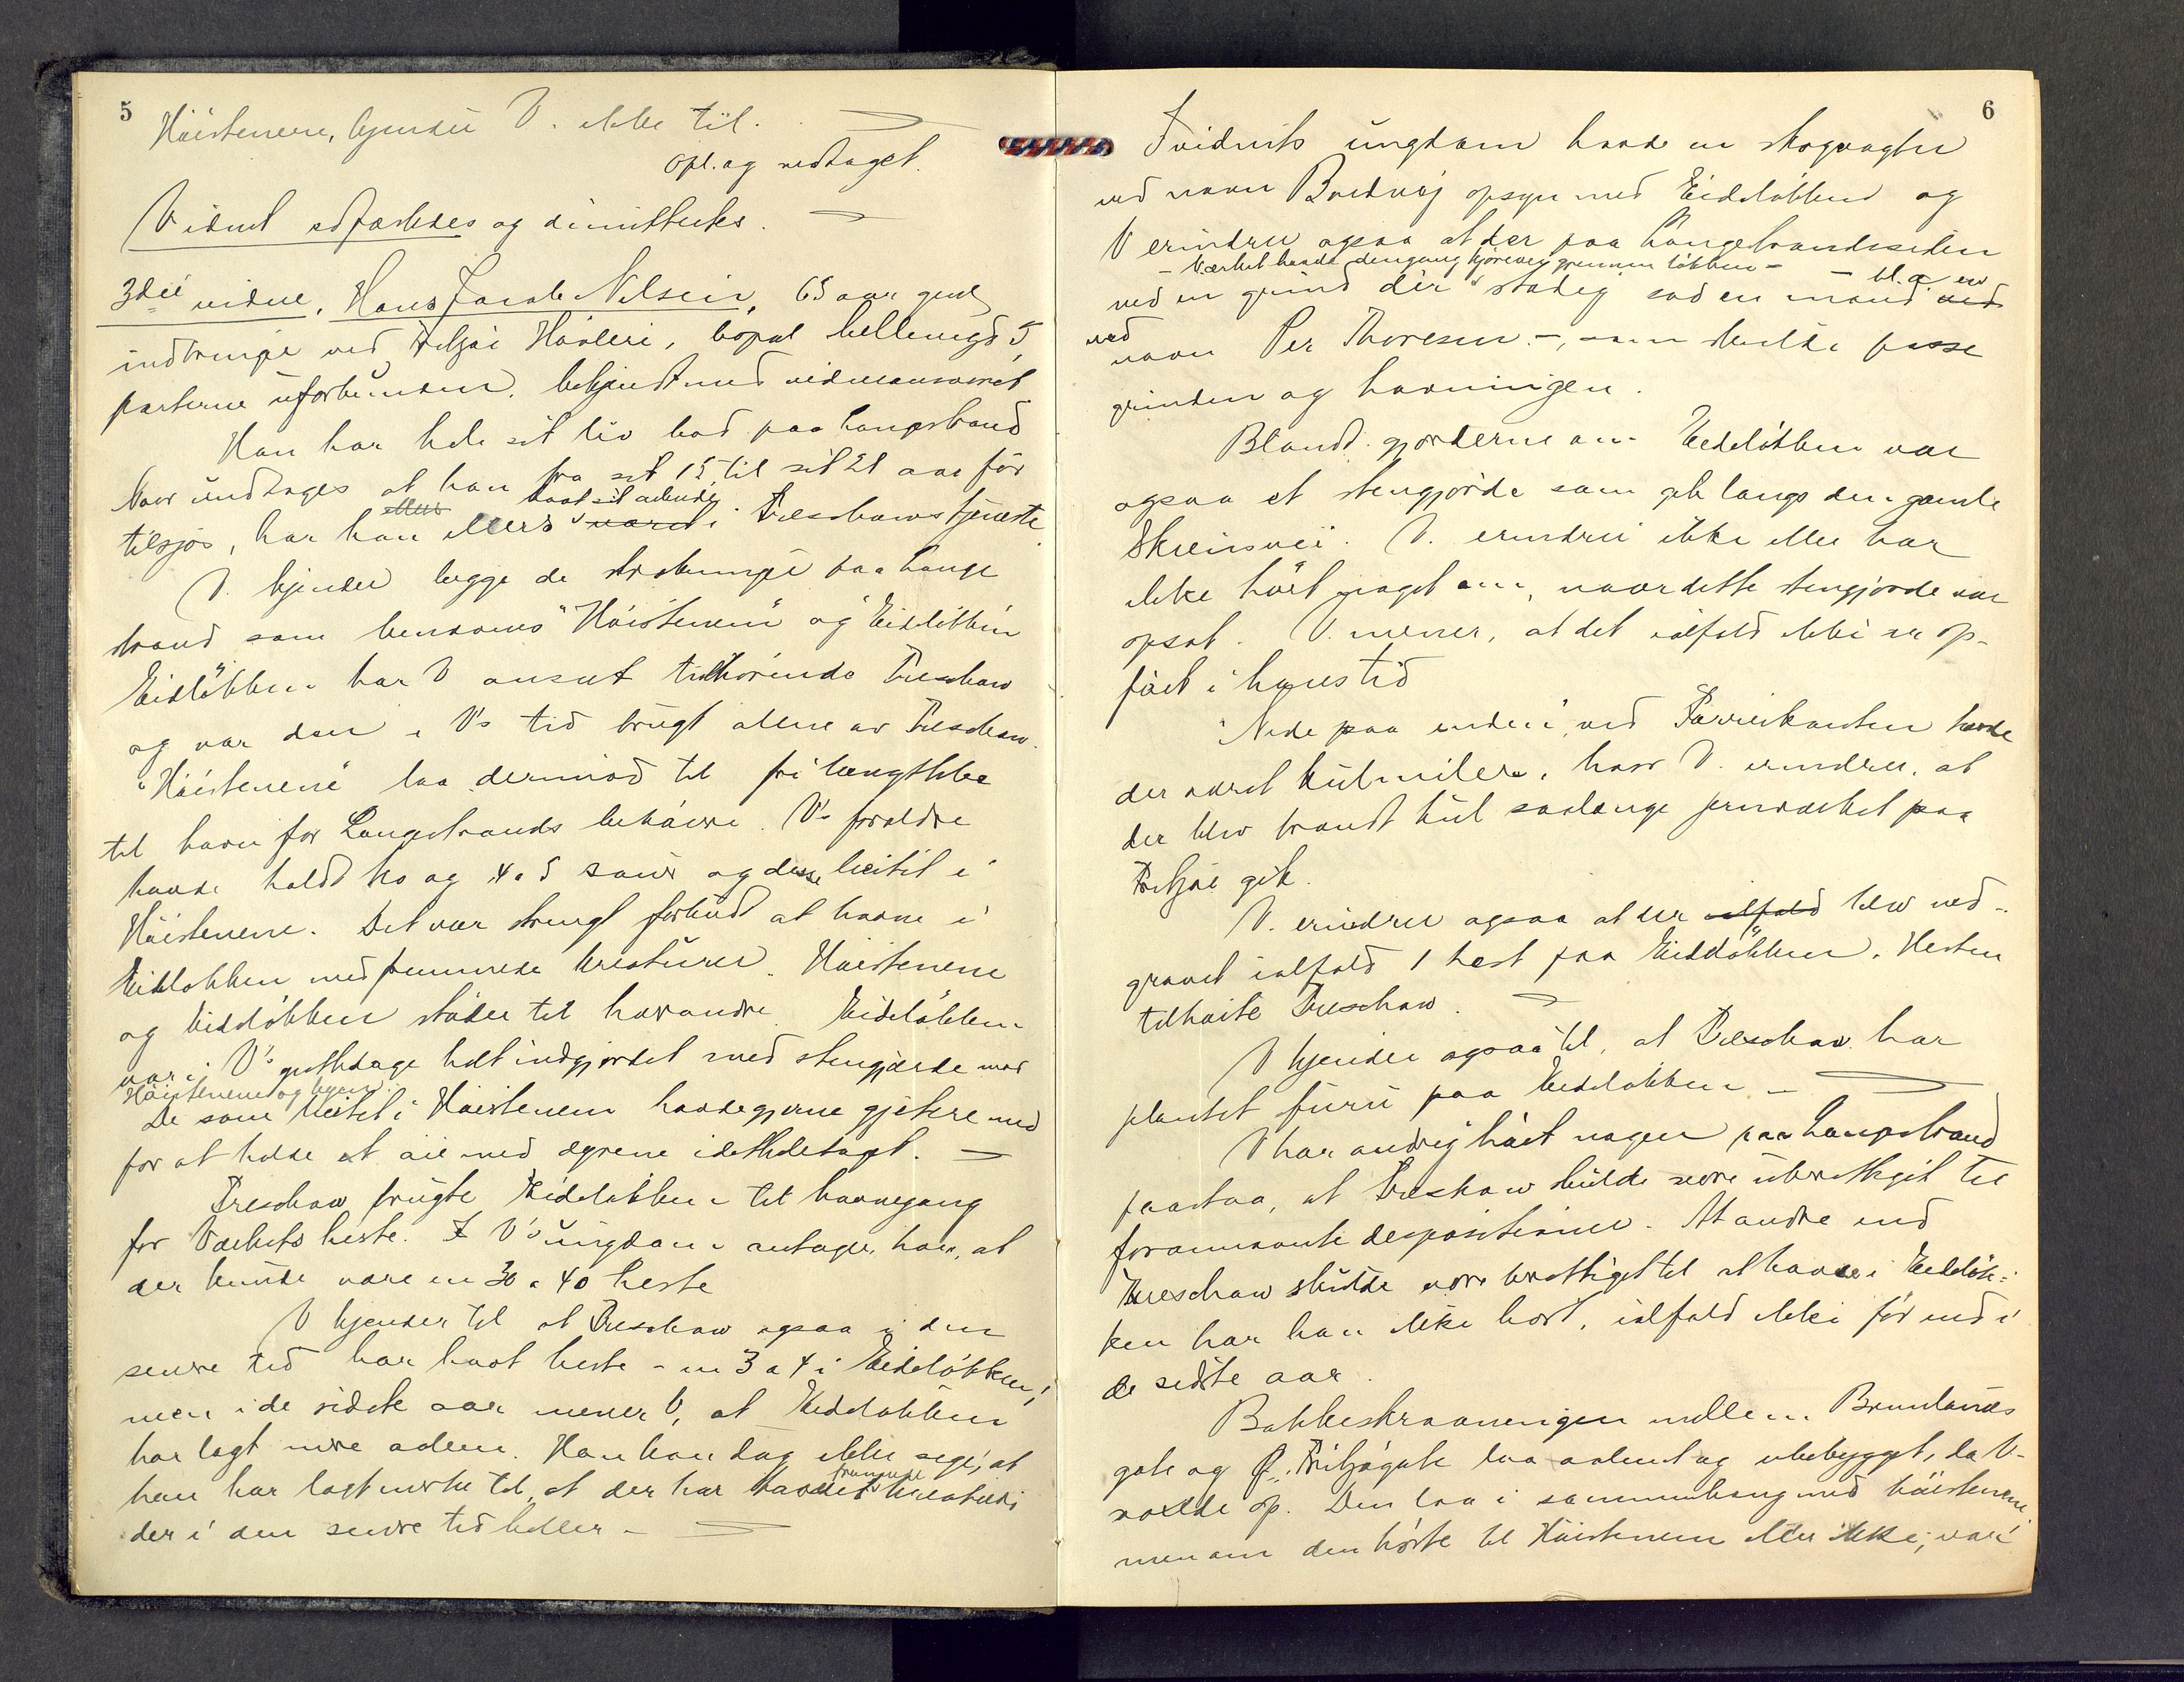 5
Höistenene, kjender V. ikke til.
Opl. og vedtaget.
Vidnet edfæstedes og dimitteredes.
3die vidne, Hans Jacob Nilsen, 65 aar gml
ved Fritzöe Hövleri, bopæl Hellemgd 5,
parterne uforbunden. bekjendt med vidneansvaret
Han har hele sit liv bod paa Langestrand
Naar undtages at han fra sit 15 til sit 21 aar för
havt sit arbeide
tilsjös, har han ellers i Treschows tjeneste.
V. kjender begge de strækninger paa Lange
strand som benævnes "Höistenene" og Eidslökken
Eidslökken har V ansæt tilhörende Treschow
og var den i V's tid brugt alene av Treschow.
"Höistenene" laa derimod til fri benyttelse
til havn for Langestrands beboere. V's forældre
havde holdt ko og 4 a 5 sauer og disse beitet i
Höistenene. Det var strengt forbudt at havne i
Eidslökken med fremmede kreaturer. Höistenene
og Eidslökken stöder til hverandre. Eidslökken
var i V's guttedage helt indgjerdet med stengjærde mod
Höistenene og byen.
De som beitet i Höistenene havde gjerne gjetere med
for at holde et öie med dyrene idethele taget.
Treschow brugte Eidslökken til havnegang
for Værkets heste. I V's ungdom antager han, at
der kunde være en 30 a 40 heste
V kjender til at Treschow ogsaa i den
senere tid har havt heste - en 3 a 4 i Eidslökken,
men i de sidste aar mener V, at Eidslökken
har lagt mere aalene. Han kan dog ikke sige, at
fremmede
han har lagt merke til, at der har havnet kreaturer
der i den senere tid heller -
6
I vidnets ungdom havde en skogvogter
ved navn Bredvej opsyn med Eidslökken og
V erindrer ogsaa at der paa Langestrandssiden
- Værket havde dengang kjörevei gjennem lökken -
- bl. a. en
ved en grind der stadig sad en mand
ved
navn Per Thoresen -, som skulde passe
grinden og havningen.
Blandt gjorderne om Eidslökken var
ogsaa et stengjörde som gik langs den gamle
Skiensvei. V. erindrer ikke eller har
ikke hört noget om, naar dette stengjörde var
opsat. V. mener, at det ialfald ikke er op-
fört i hans tid
Nede paa enden, ved Farriskanten havde
der været kulmiler, hvor V. erindrer, at
der blev brændt kul saalænge jernværket paa
Fritzöe gik.
V. erindrer ogsaa at der ialfald blev ned-
gravet ialfald 1 hest paa Eidslökken. Hesten
tilhörte Treschow.
V kjender ogsaa til, at Treschow har
plantet furu paa Eidslökken -
V har aldrig hört nogen paa Langestrand
paastaa, at Treschow skulde være uberettiget til
forannævnte dispositioner. At andre end
Treschow skulde være berettiget til at havne i Eidslök=
ken har han ikke hört, ialfald ikke för end i
de sidste aar.
Bakkeskraaningen mellem Brunlanæs
gate og Ö. Fritzögate laa aalent og ubebygget, da V.
voxte op. Den laa i sammenheng med höistenene
men om den hörte til Höistenene eller ikke, var